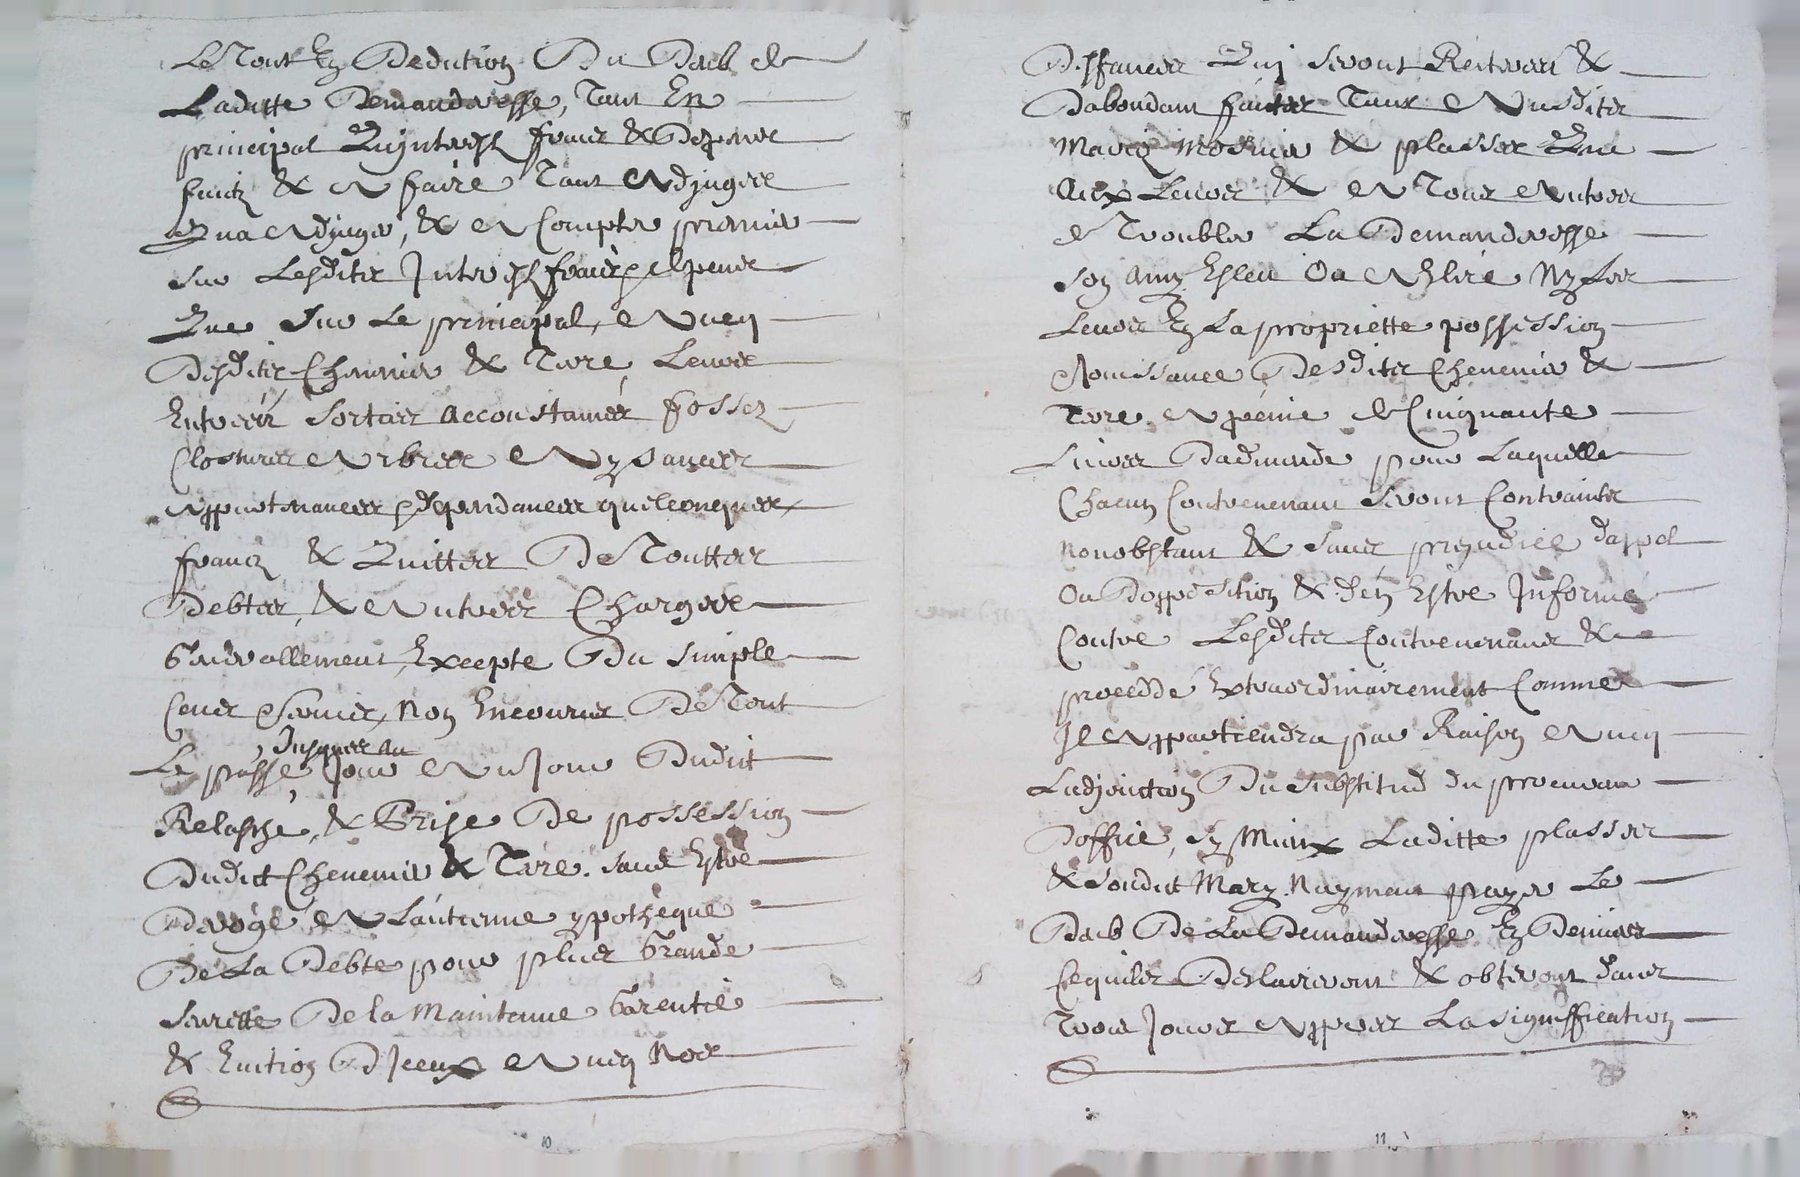 Le Tout En Dedution Du Deub de
Laditte Demanderesse, Tant En
principal Quinterestz fraix & Despans
faictz & A faire Tant Adjuges
Qua Adjuger, & A Compter premier
sur Lesdits Interestz fraix & despens
Que Sur Le principal, Avecq
Desdits Chenevier & Terre, Leurs
Entrees Sorties accoustumées fossez
Clostures Arbres Aysances
Appartenances & dependances quelconques
francz & Quittes De Touttes
Debtes, & Autres Charges
Generallement, Excepte Du simple
Cens Servis, Non Encourus De Tout
Le passé Jusques au Jour Au Jour Dudict
Relasche, & Prise De possession
Dudict Chenevier & Terre, Sans Estre
Derogé A Lantienne ypotheque
De La Debte pour plus Grande
Seurette De la Maintenue Garentie
& Eviction D'Iceux Avecq Nos
Deffances Quy Seront Reiterees &
Dabondant faictes Tant Ausdits
Mariez & plasses Que
Aux Leurs & A Tous Autres
de Troubler La Demanderesse
Son Amy Esleu Ou A Eslire Ny Les
Leurs En La propriette possession
Jouissance Desdits Chenevier &
Terre, A peine de Cinquante
Livres Dadmende pour Laquelle
Chacun Contrevenant Seront Contraints
Nonobstant & Sans prejudice dappel
Ou Dopposition & d'En Estre Informé
Contre Lesdits Contrevenans &
proceddé Extraordinairement Comme
Il Appartiendra par Raison Avecq
Ladjonction Du Substitud du procureur
Doffice, Sy Mieux Laditte plasses
& Sondit Mary Nayment payer Le
Deub De La Demanderesse En Deniers
Cequils Desclaireront & obteront dans
Trois Jours Appres La signiffication
10
11